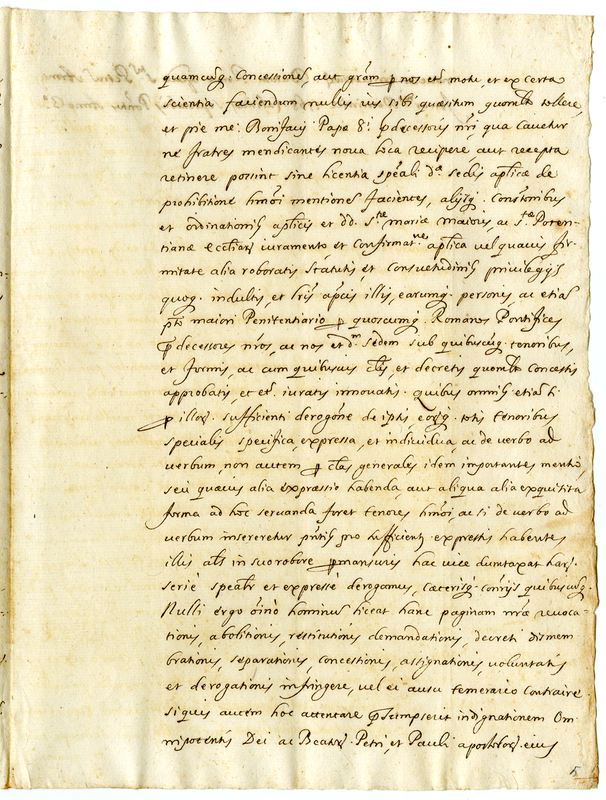 quamcunq; Concessiones, aut grãm p nos etc̃ motu, et ex certa
scientia faciendum nullis ius sibi quæsitum quomt̃ tollere
et piæ me: Bonifacij Papæ 8.i p̃decessoris nr̃i qua cavetur
ne fratres mendicantes nova loca recipere, aut recepta
retinere possint sine licentia spẽali d.æ sedis aplicæ de
prohibitione hmõi mentiones faciences, alijsq; Constõnibus
et ordinationib; aplicis et dd. S.tæ Mariæ maioris ac S.tæ Poten-
tianæ Eccliar; iuramento, et Confirmat.ne aplica vel quavis fir-
mitate alia roboratis statutis, et Consuetudinib; privilegijs
quoq. indultis et lr̃is aplicis illis, earumq; personis, ac etiã
p̃to maiori Penitentiario p quoscunq; Romanos Pontifices
p̃decessores nr̃os, ac nos et d.m sedem sub quibuscunq; tenoribus,
et formis, ac cum quibusvis cl̃is, et decretis quomt̃ concestis
approbatis, et etc̃. iuratis innovatis. quibus omnib; etiã si
p illor; sufficienti derogõne de ip̃is, eorq; totis tenoribus
specialis specifica expressa, et individua, ac de verbo ad
verbum, non autem p cl̃as generales idem importantes mentio,
seu quævis alia expræssio habenda, aut aliqua alia exquisita
forma ad hoc servanda foret tenores hmõi, ac si de verbo ad
verbum insererentur pñtib; pro sufficient; expressis habentes
illis al̃s in suo robore pmansuris hac vice dumtaxat har;
serie spealr̃ et expresse derogamus, cæterisq; con̄rijs quibuscunq;
Nulli ergo oĩno hominum liceat hanc paginam nr̃æ revoca-
tionis, abolitionis restitutionis demandationis, decreti dismem
brationis, separationis, concestionis, assignationis, voluntatis
et derogationis infringere, vel ei ausu temerario Contraire
si quis autem hoc attentare p̃sumpserit indignationem Om-
nipotentis Dei ac Beator; Petri, et Pauli apostolor; eius
5